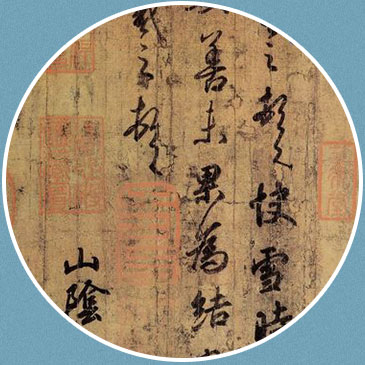 之頓首快雪時
善未果為結
羲之頓首
山陰